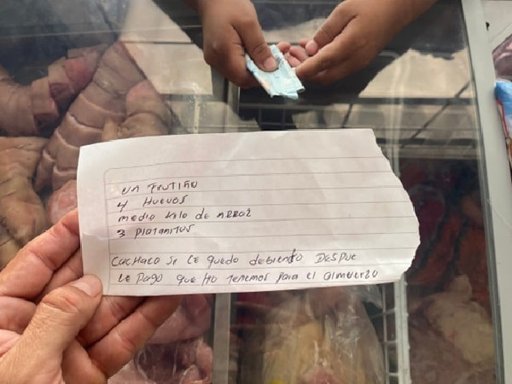 un FruTiño
4 Huevos
medio kilo de arroz
3 platanitos
Cachaco se le quedo debiendo Despue
le pago que No Tenemos para el almuerzo